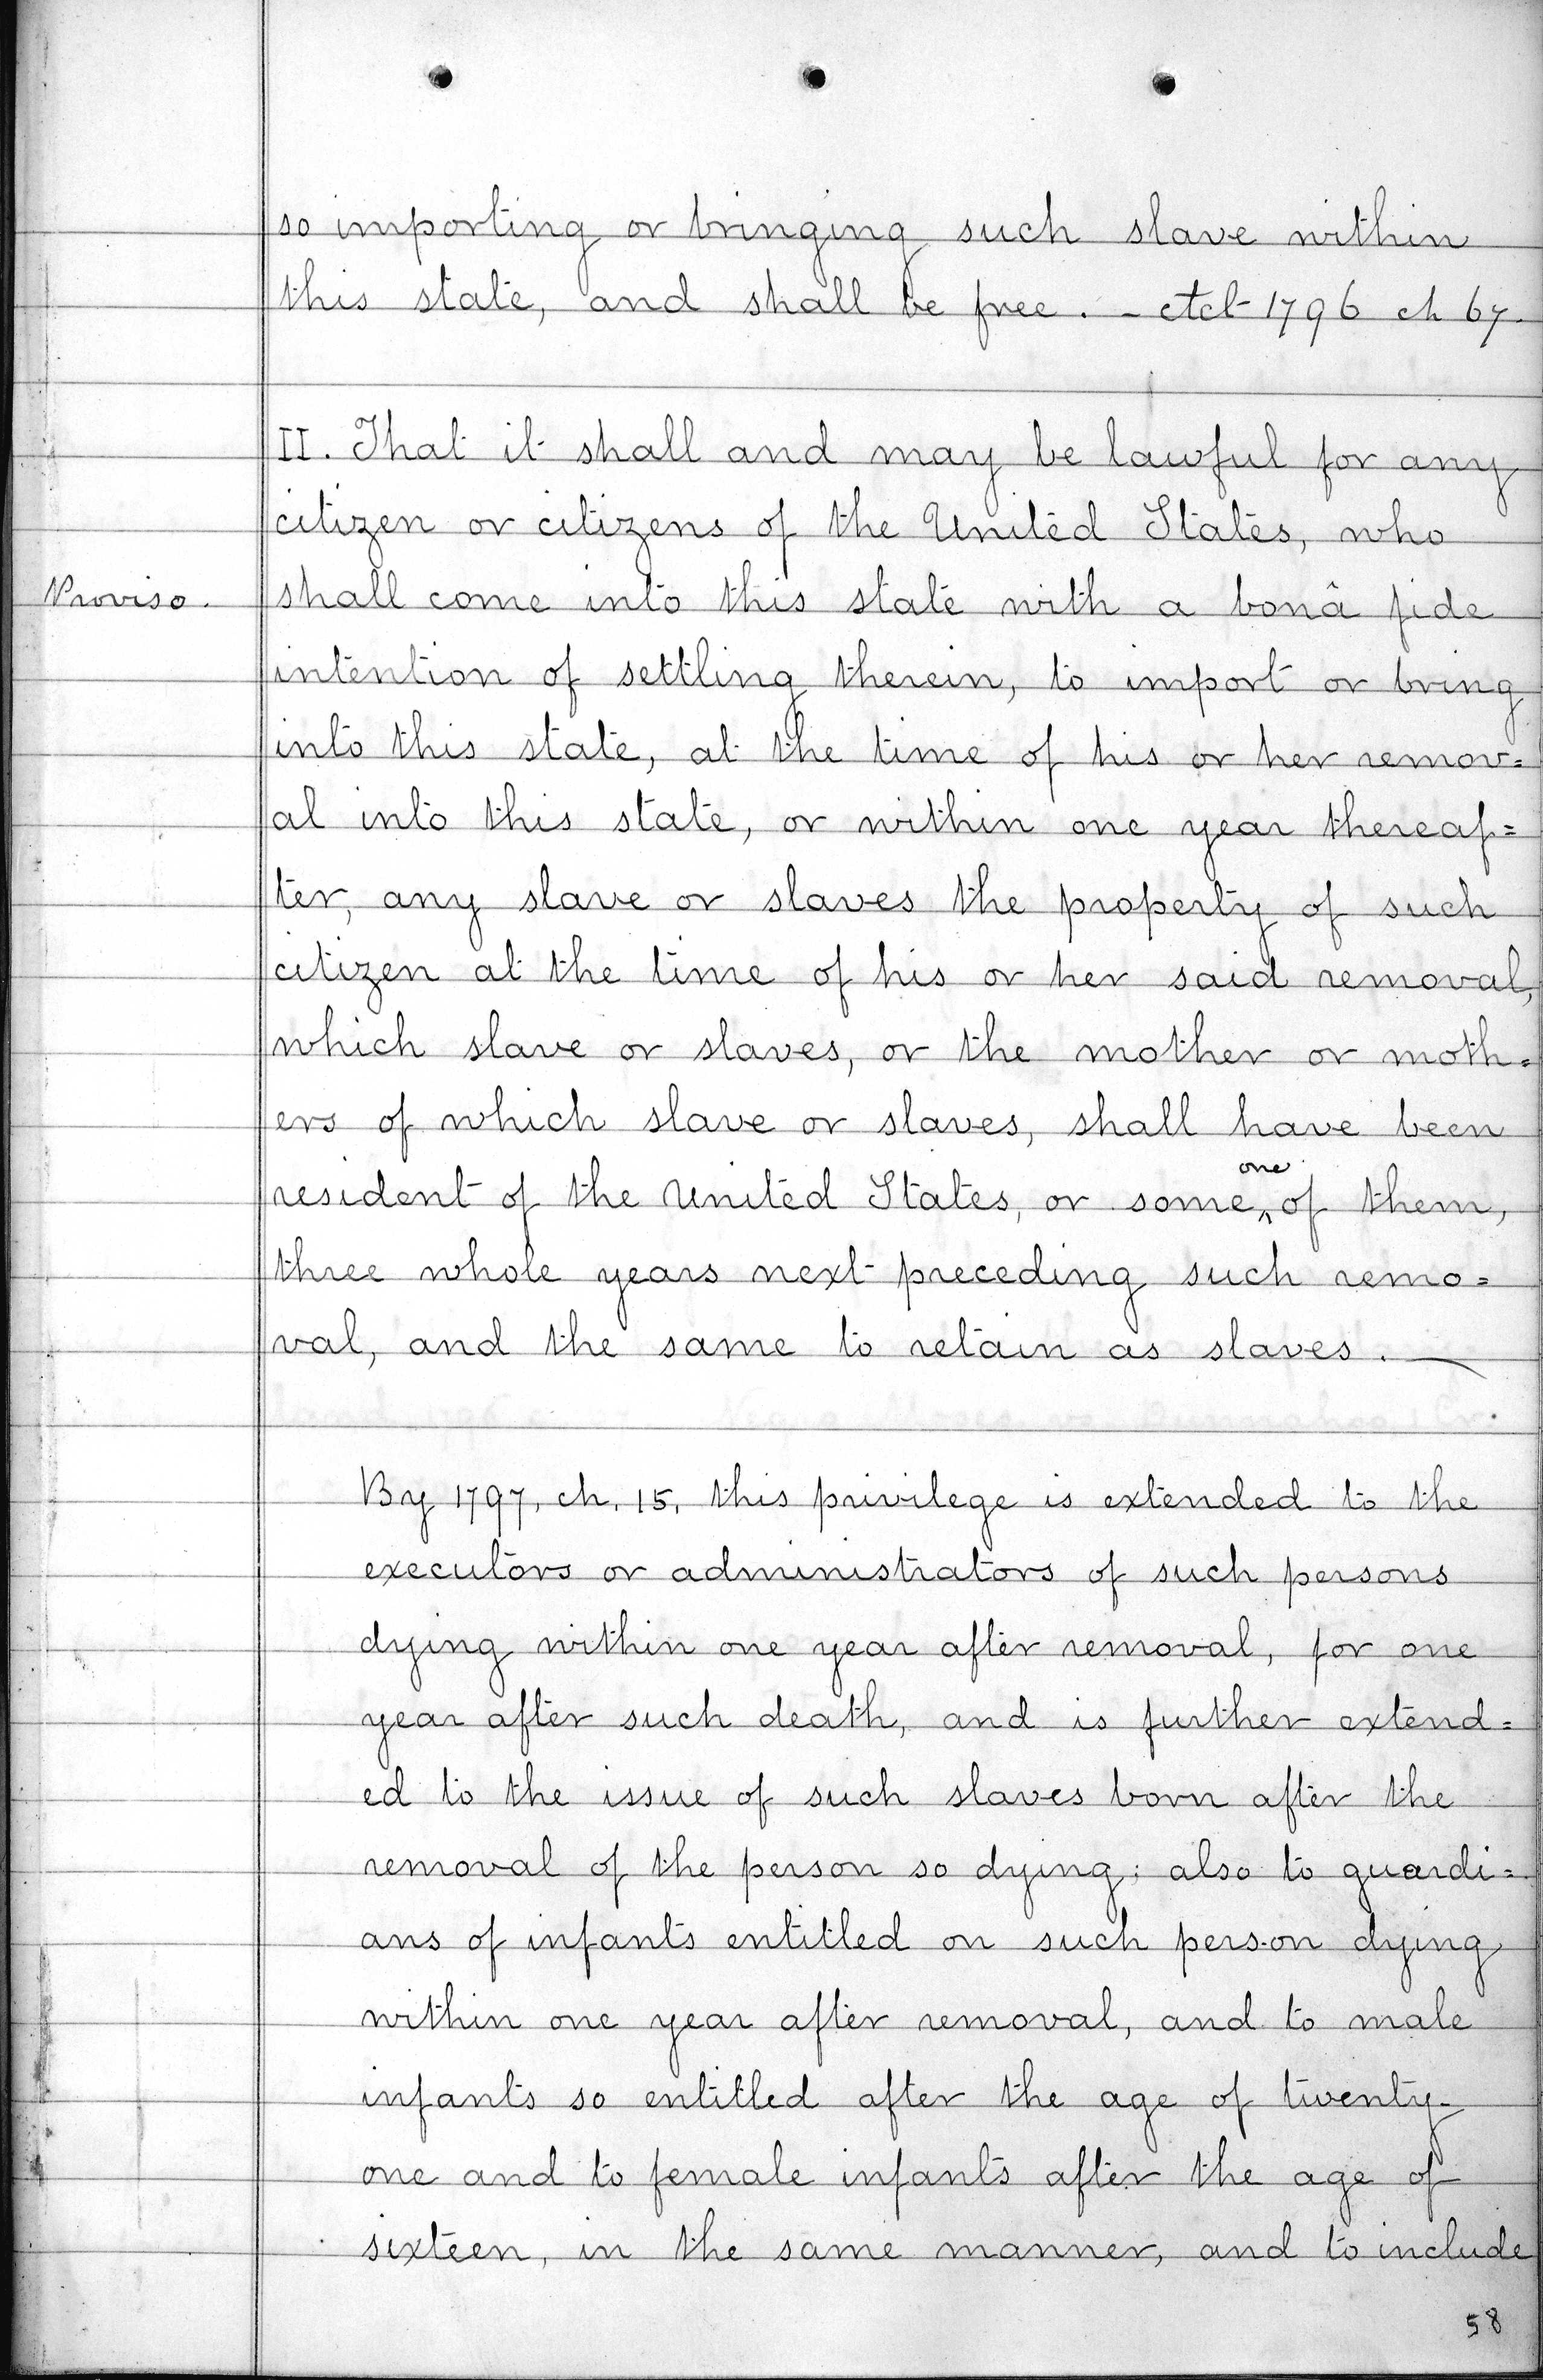 so importing or bringing such slave within
this state, and shall be free. - Act 1796 ch 67.
II. That it shall and may be lawful for any
citizen or citizens of the United States, who
Proviso.
shall come into this state with a bonâ fide
intention of settling therein, to import or bring
into this state, at the time of his or her remov=
al into this state, or within one year thereaf=
ter, any slave or slaves the property of such
citizen at the time of his or her said removal,
which slave or slaves, or the mother or moth=
ers of which slave or slaves, shall have been
resident of the United States, or some one of them,
three whole years next preceding such remo=
val, and the same to retain as slaves. —
By 1797, ch. 15, this privilege is extended to the
executors or administrators of such persons
dying within one year after removal, for one
year after such death, and is further extend=
ed to the issue of such slaves born after the
removal of the person so dying; also to guardi=
ans of infants entitled on such person dying
within one year after removal, and to male
infants so entitled after the age of twenty-
one and to female infants after the age of
sixteen, in the same manner, and to include
58